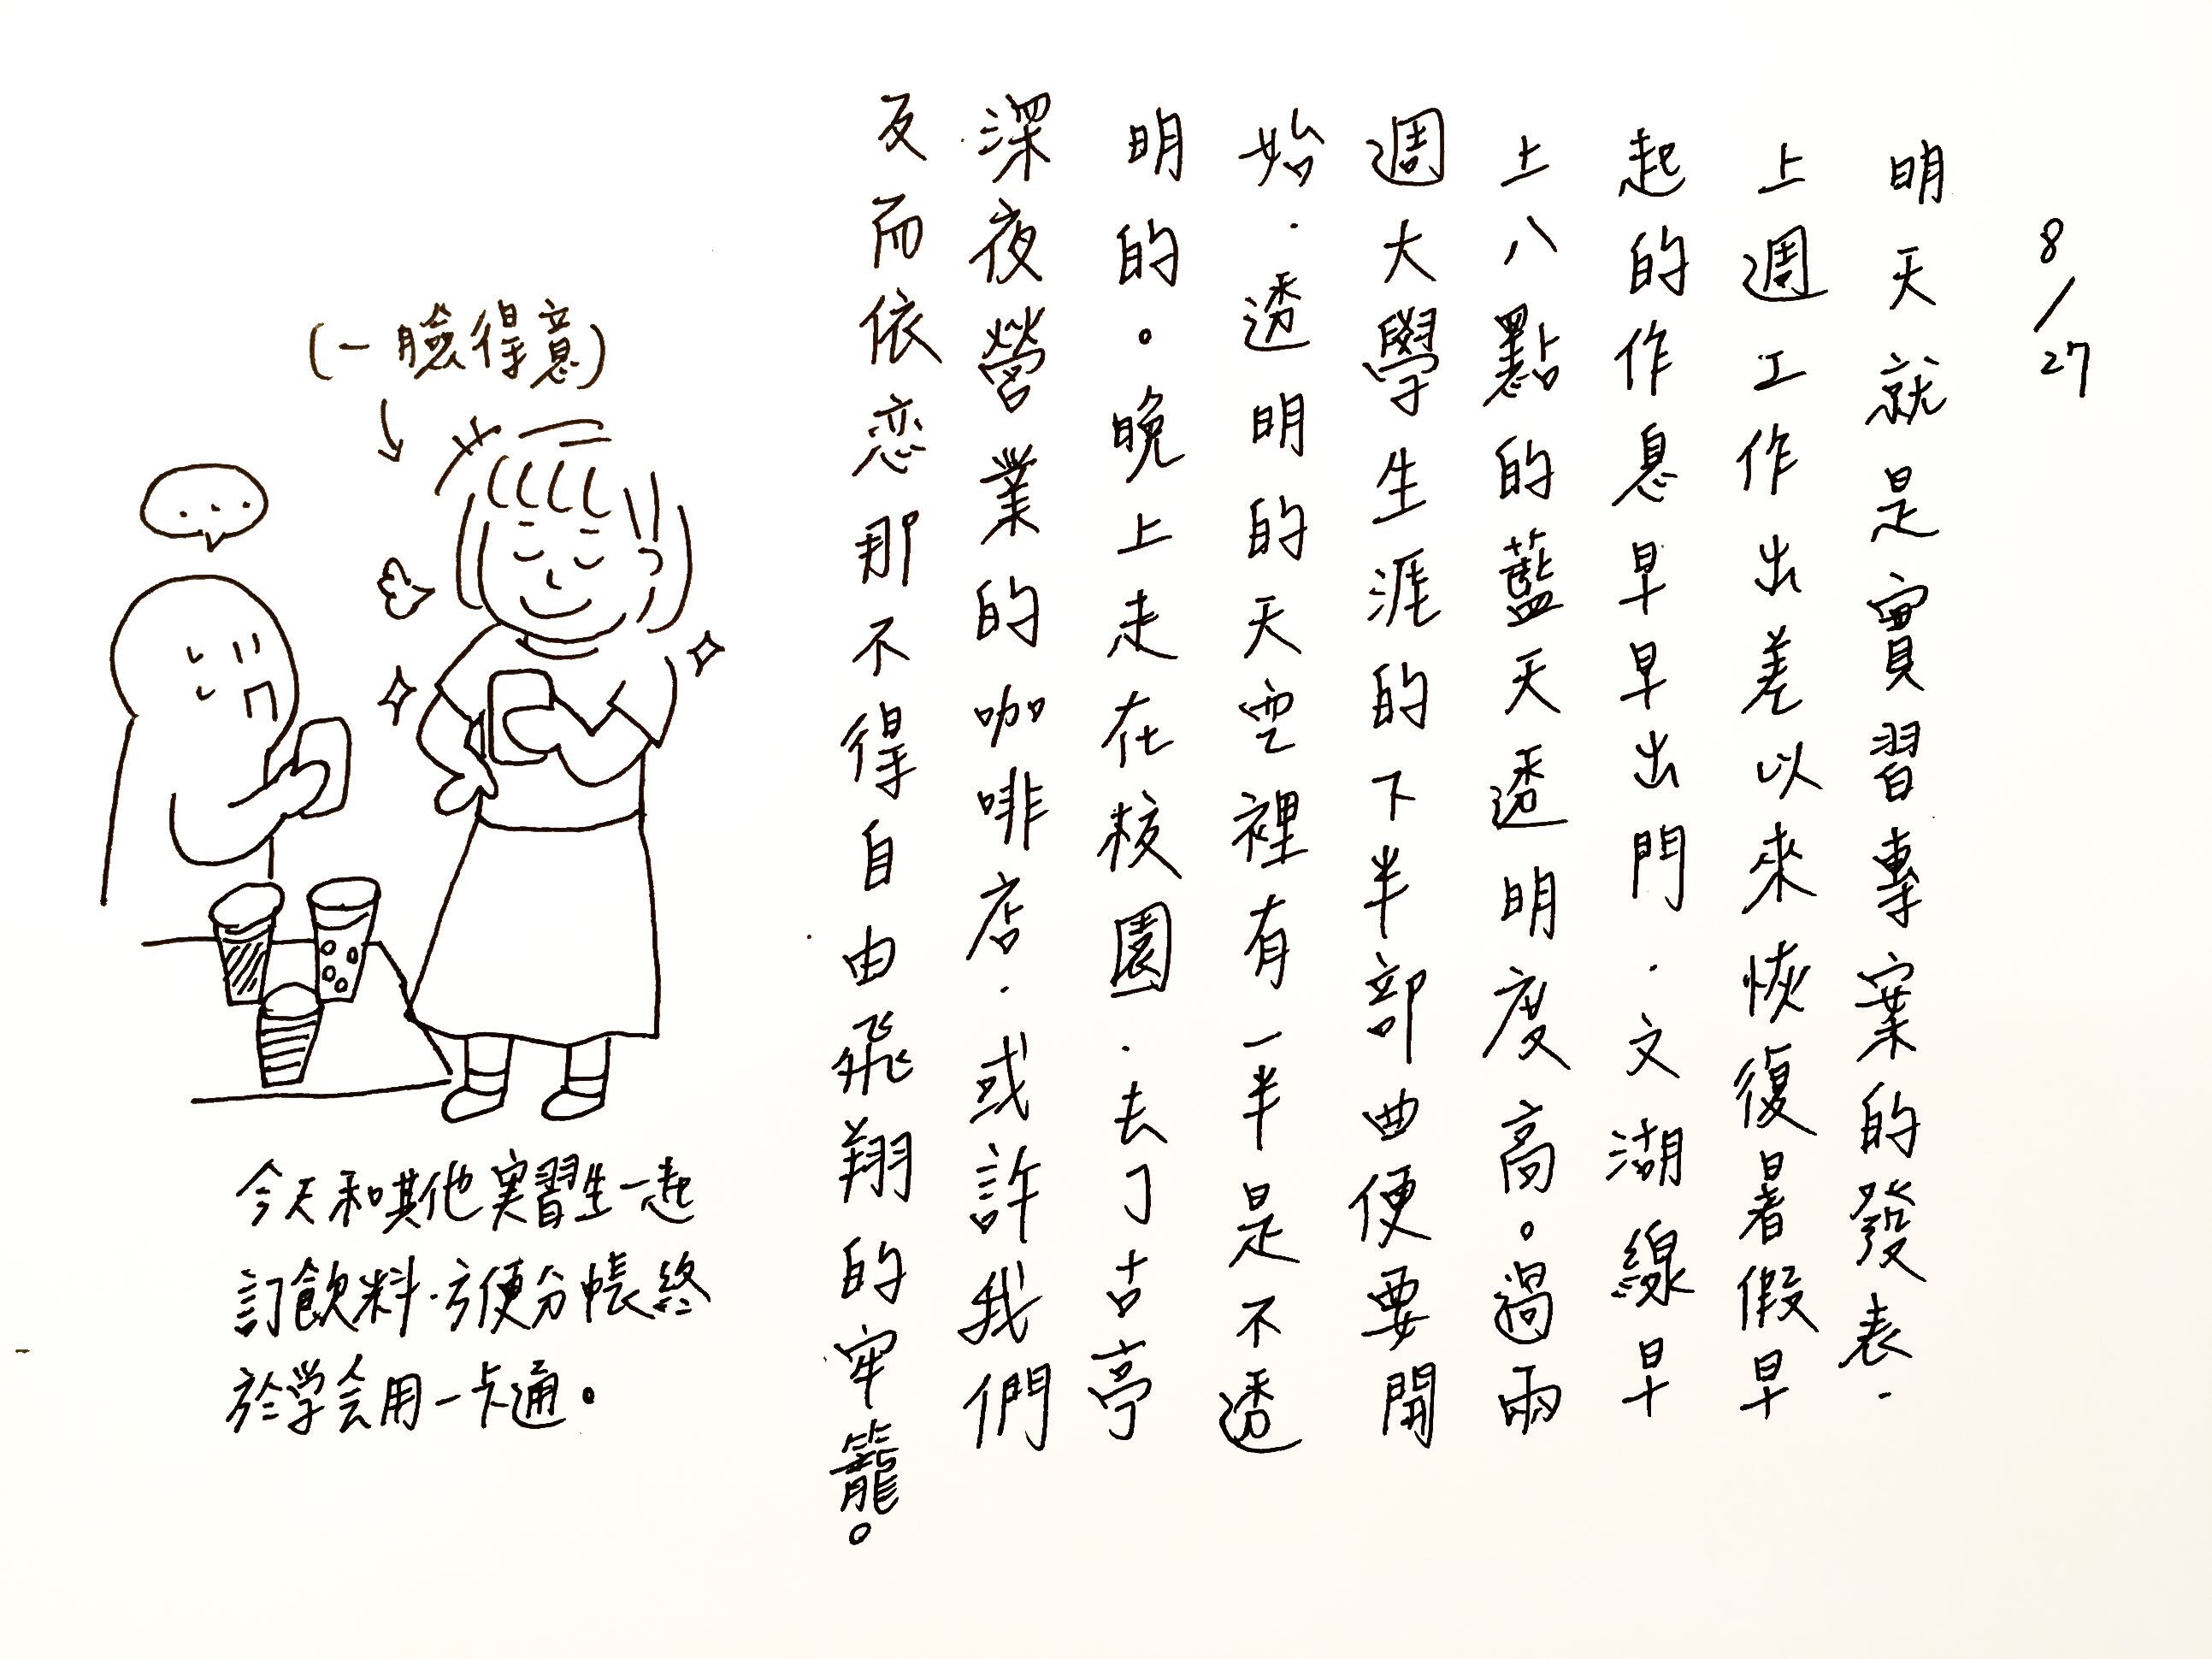 8/27
明天就是實習專案的發表.
上週工作出差以來恢復暑假早
起的作息早早出門.文湖線早
上八點的藍天透明度高。過兩
週大學生涯的下半部曲便要開
始.透明的天空裡有一半是不透
明的。晚上走在校園.去了古亭
深夜營業的咖啡店.或許我們
反而依恋那不得自由飛翔的牢籠。
(一臉得意)
...
今天和其他実習生一起
訂飲料.方便分帳終
於学会用一卡通。